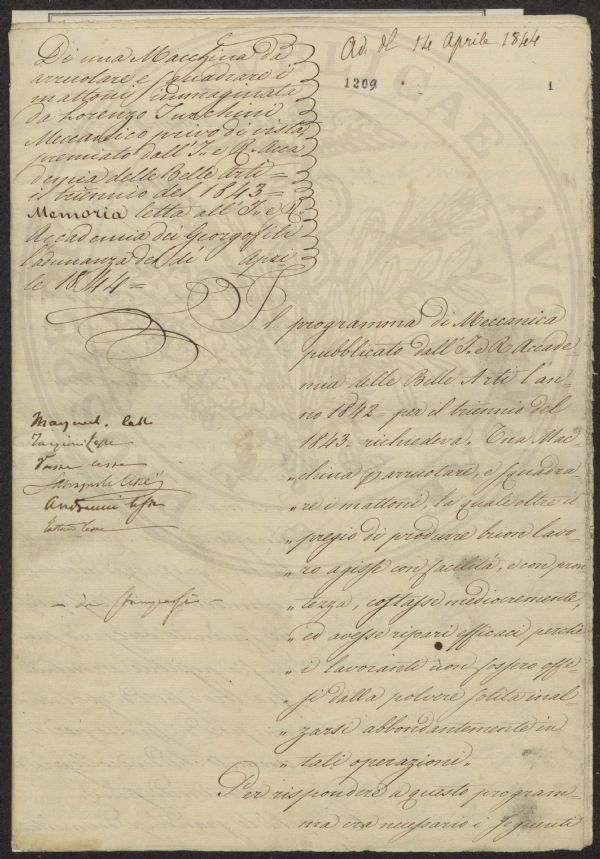 Ad. d. 14 Aprile 1844
1209
1
Di una Macchina da
arruotare e squadrare i
mattoni immaginata
da Lorenzo Turchini
Meccanico privo di vista,
premiato dall'I. e R. Acca
demia delle Belle Arti
il triennio del 1843=
Memoria letta all'I. e R.
Accademia dei Georgofili
l'adunanza del dì Apri
le 1844=
Il programma di Meccanica
pubblicato dall'I. e R. Accade-
mia delle Belle Arti l'an-
no 1842 per il triennio del
1843. richiedeva. Una Mac-
"china p arruotare, e squadra-
"re i mattoni, la quale oltre il
"pregio di produrre buon lavo-
"ro agisse con facilità, e con pron
"tezza, costasse mediocremente,
"ed avesse ripari efficaci perchè
"i lavoranti non fossero offe-
"si dalla polvere solita inal-
"zarsi abbondantemente in
"tali operazioni.
Per rispondere a questo program-
ma era necessario i seguenti